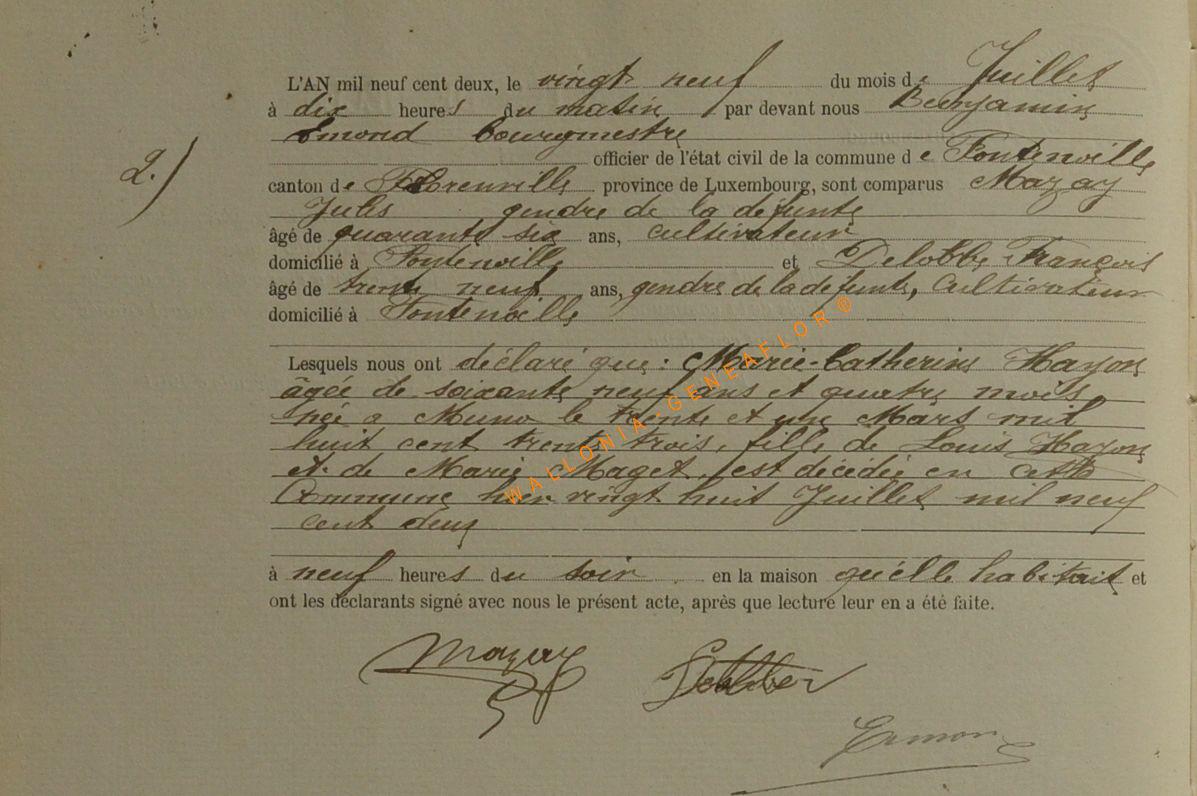 L'AN mil neuf cent deux, le vingt neuf du mois de Juillet
à dix heures du matin par devant nous Benjamin
Emond bourgmestre
officier de l'état civil de la commune de Fontenoille
canton de Florenville province de Luxembourg, sont comparus Mazay
Jules gendre de la défunte
2.)
âgé de quarante six ans, cultivateur
domicilié à Fontenoille et Delobbe François
âgé de trente neuf ans, gendre de la défunte, cultivateur
domicilié à Fontenoille
Lesquels nous ont déclaré que: Marie-Catherine Hazon
âgée de soixante neuf ans et quatre mois
née a Muno le trente et un Mars mil
huit cent trente trois, fille de Louis Hazon
et de Marie Maget, est décédée en cette
Commune hier vingt huit Juillet mil neuf
cent deux
WALLONIA-GENEAFLOR®
à neuf heures du soir en la maison qu'elle habitait et
ont les déclarants signé avec nous le présent acte, après que lecture leur en a été faite.
Mazay